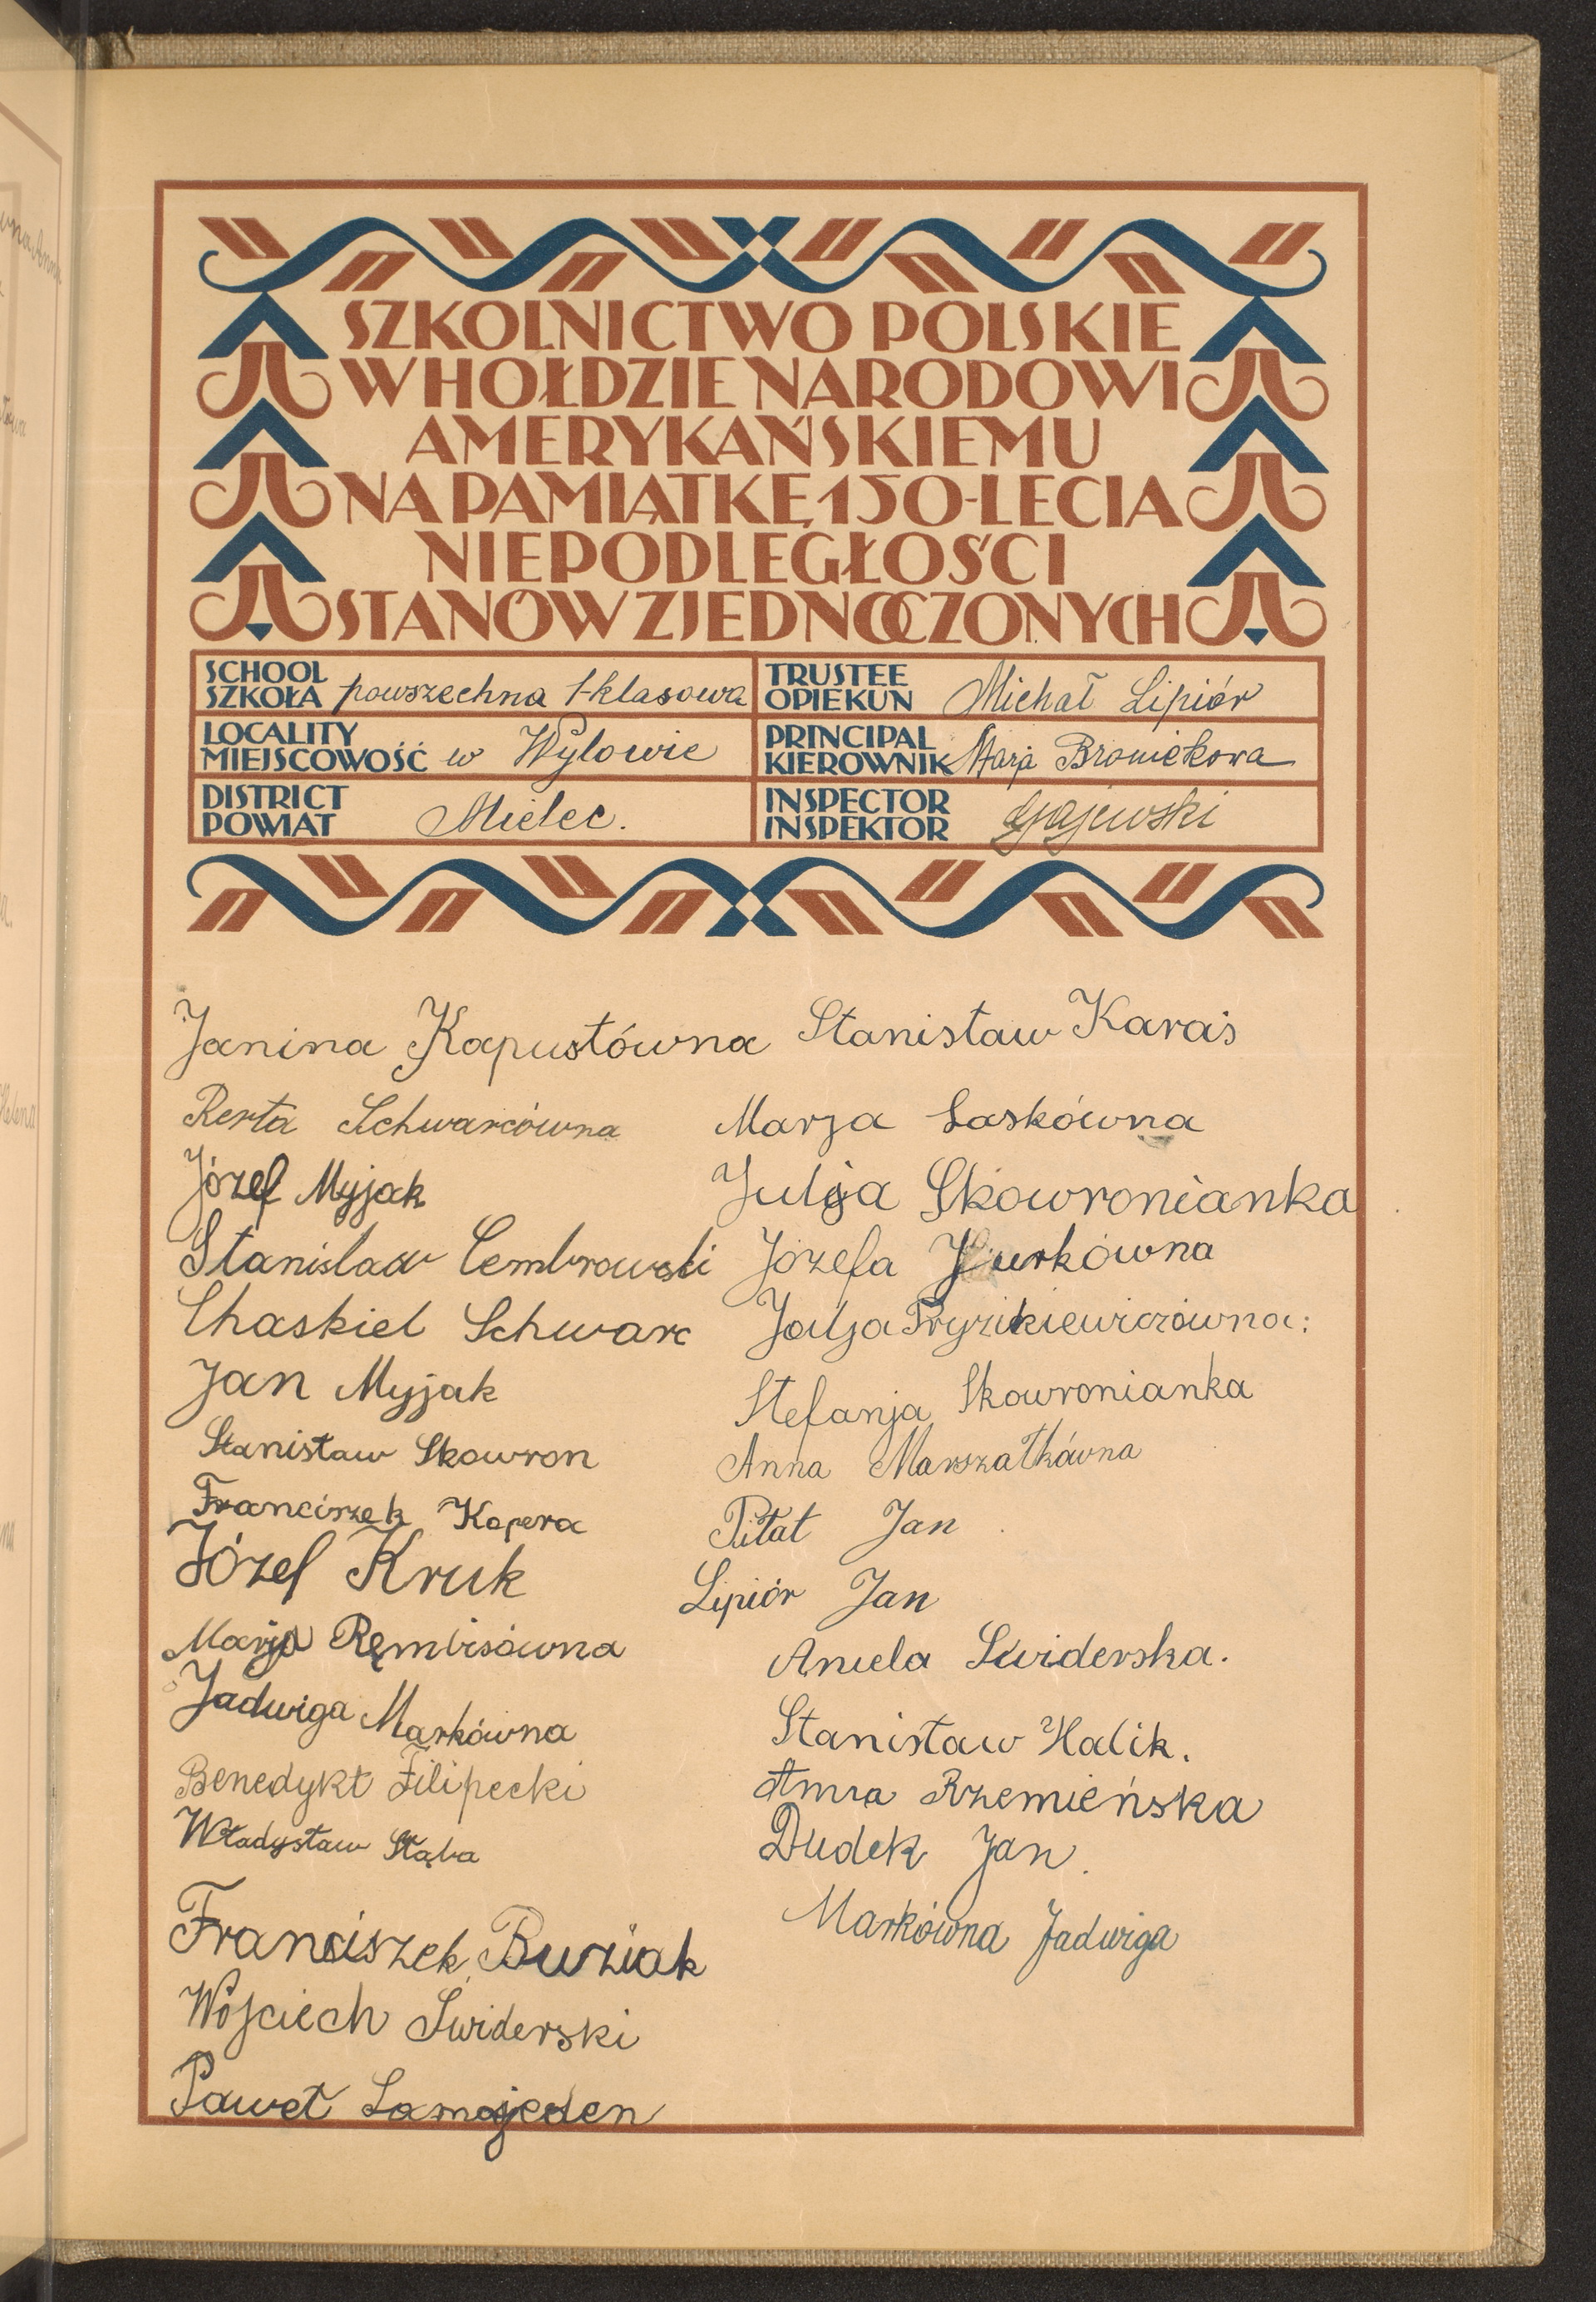 SZKOLNICTWO POLSKIE
W HOŁDZIE NARODOWI
AMERYKAŃSKIEMU
NA PAMIĄTKĘ 150-LECIA
NIEPODLEGŁOŚCI
STANÓW ZJEDNOCZONYCH
SCHOOL
SZKOŁA powszechna 1-klasowa
TRUSTEE
OPIEKUN Michał Lipiór
LOCALITY
MIEJSCOWOŚĆ w Wylowie
PRINCIPAL
KIEROWNIK Marja Broniekowa
DISTRICT
POWIAT Mielec.
INSPECTOR
INSPEKTOR Gajewski
Janina Kapustówna
Berta Schwarcówna
Józef Myjak
Stanisław Cembrowski
Chaskiel Schwarc
Jan Myjak
Stanisław Skowron
Franciszek Kopera
Józef Kruk
Marja Rembisówna
Jadwiga Markówna
Benedykt Filipecki
Władysław Stąba
Franciszek Buziak
Wojciech Świderski
Paweł Samojeden
Stanisław Karaś
Marja Laskówna
Julja Skowronianka
Józefa Jurkówna
Julja Pryzikiewiczówna:
Stefanja Skowronianka
Anna Marszałkówna
Piłat Jan
Lipiór Jan
Aniela Świderska.
Stanisław Halik.
Anna Rzemieńska
Dudek Jan.
Markówna Jadwiga